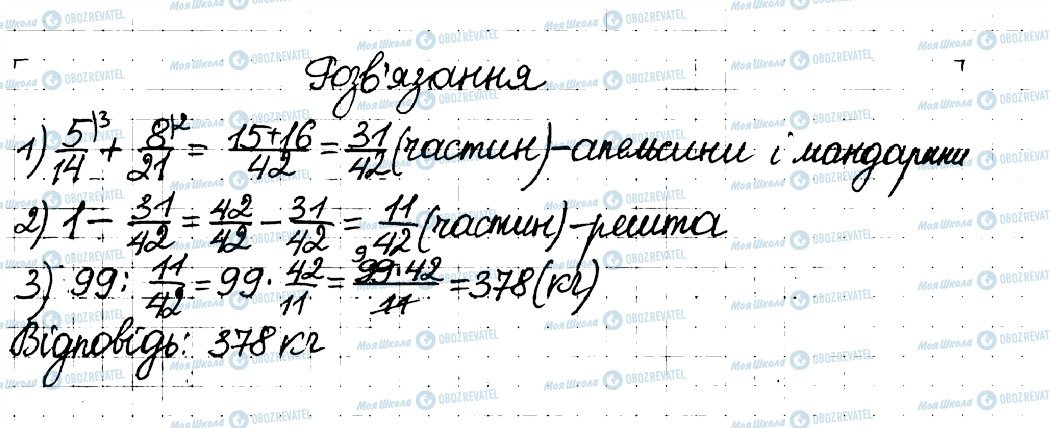 Розв'язання
1) 5/14 |3 + 8/21 |2 = 15+16/42 = 31/42 (частин) – апельсини і мандарини
2) 1 – 31/42 = 42/42 – 31/42 = 11/42 (частин) – решта
3) 99 : 11/42 = 99 · 42/11 = 9 99·42/11 = 378 (кг)
Відповідь: 378 кг